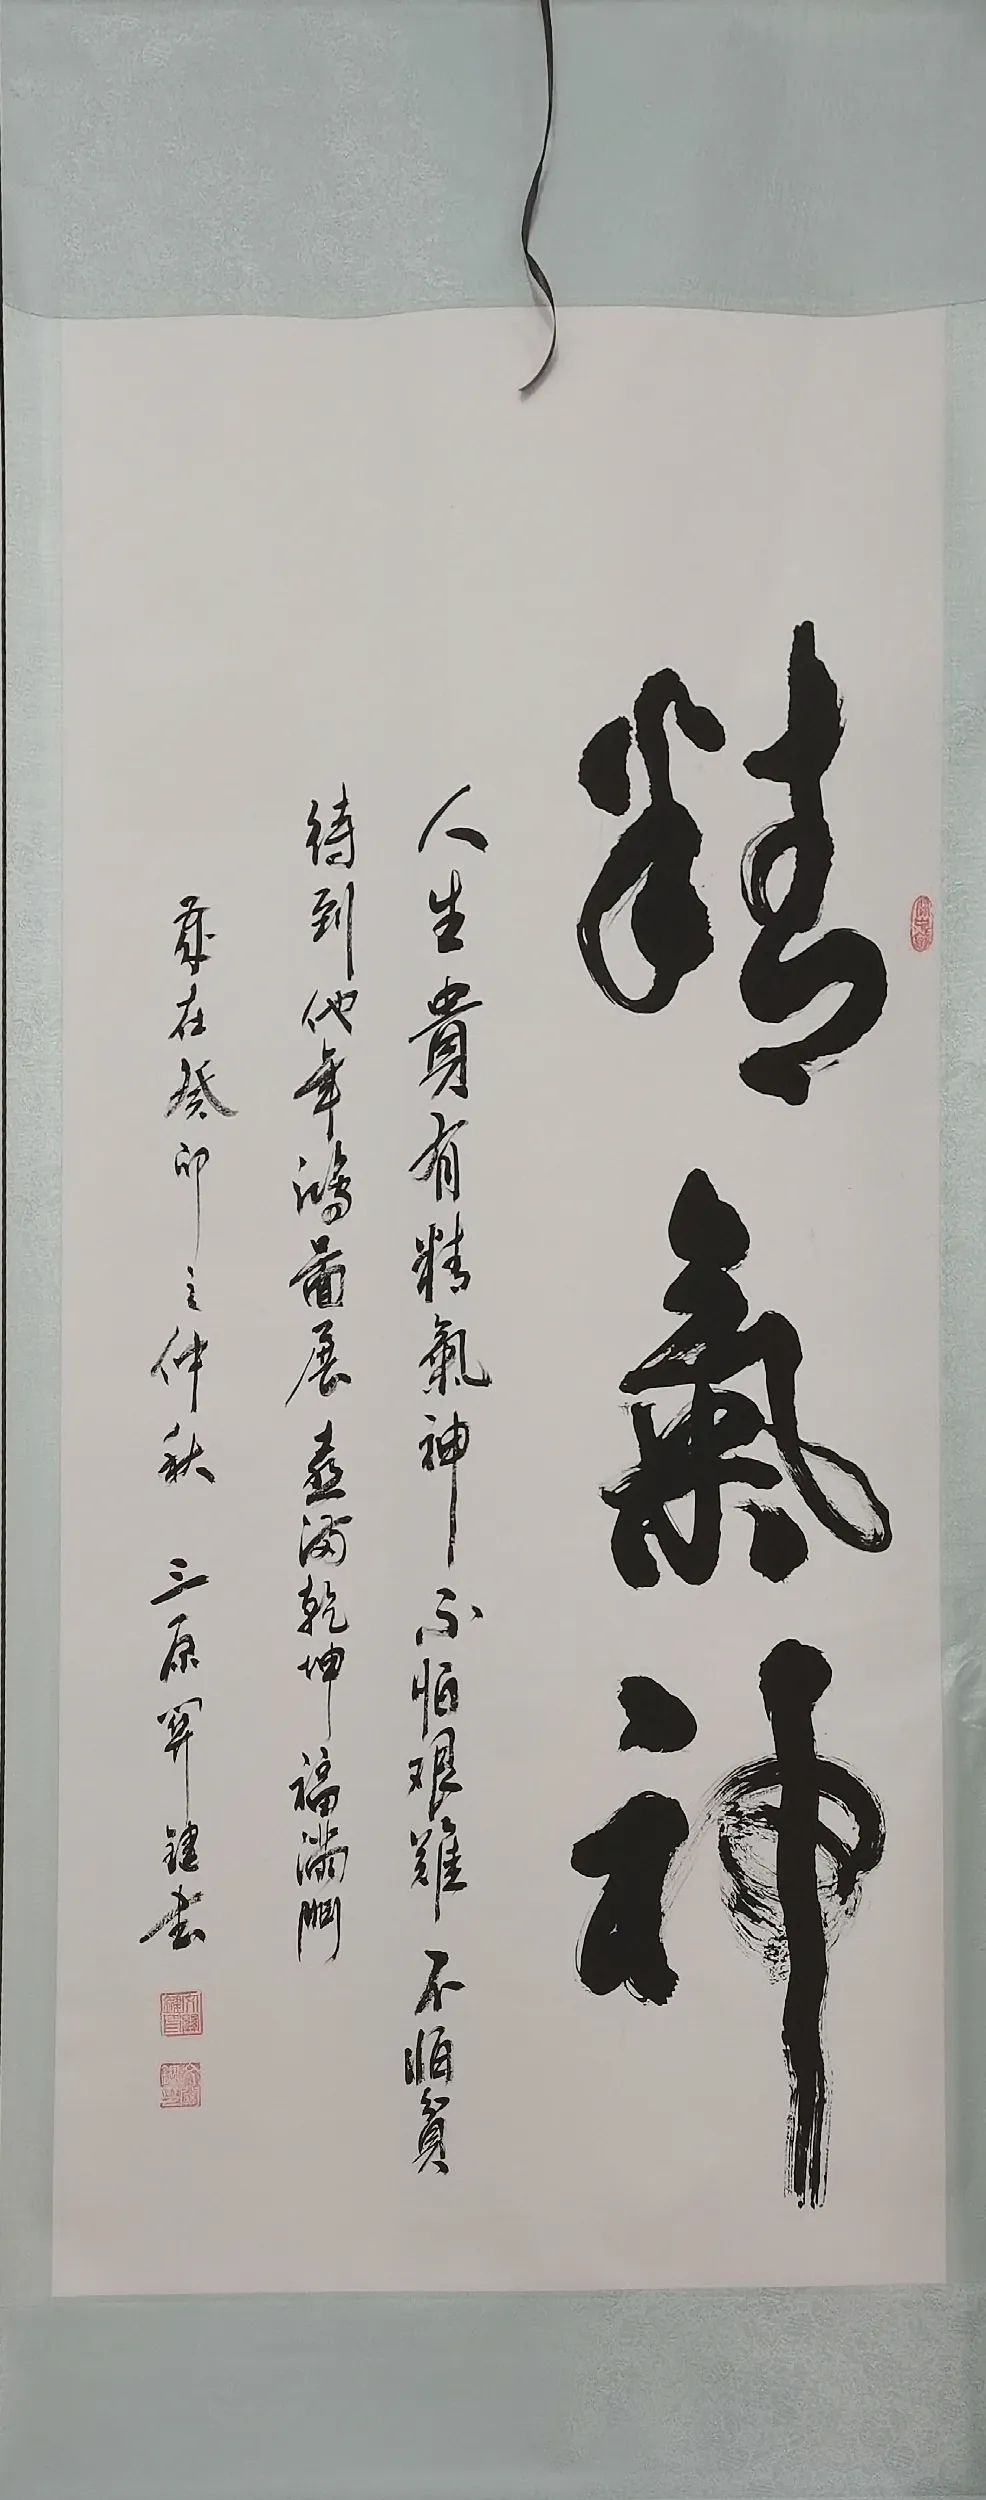 精氣神
人生貴有精氣神不怕艰難不怕貧
待到他年鴻圖展喜滿乾坤福满門
歲在癸卯之仲秋三原开鏈书